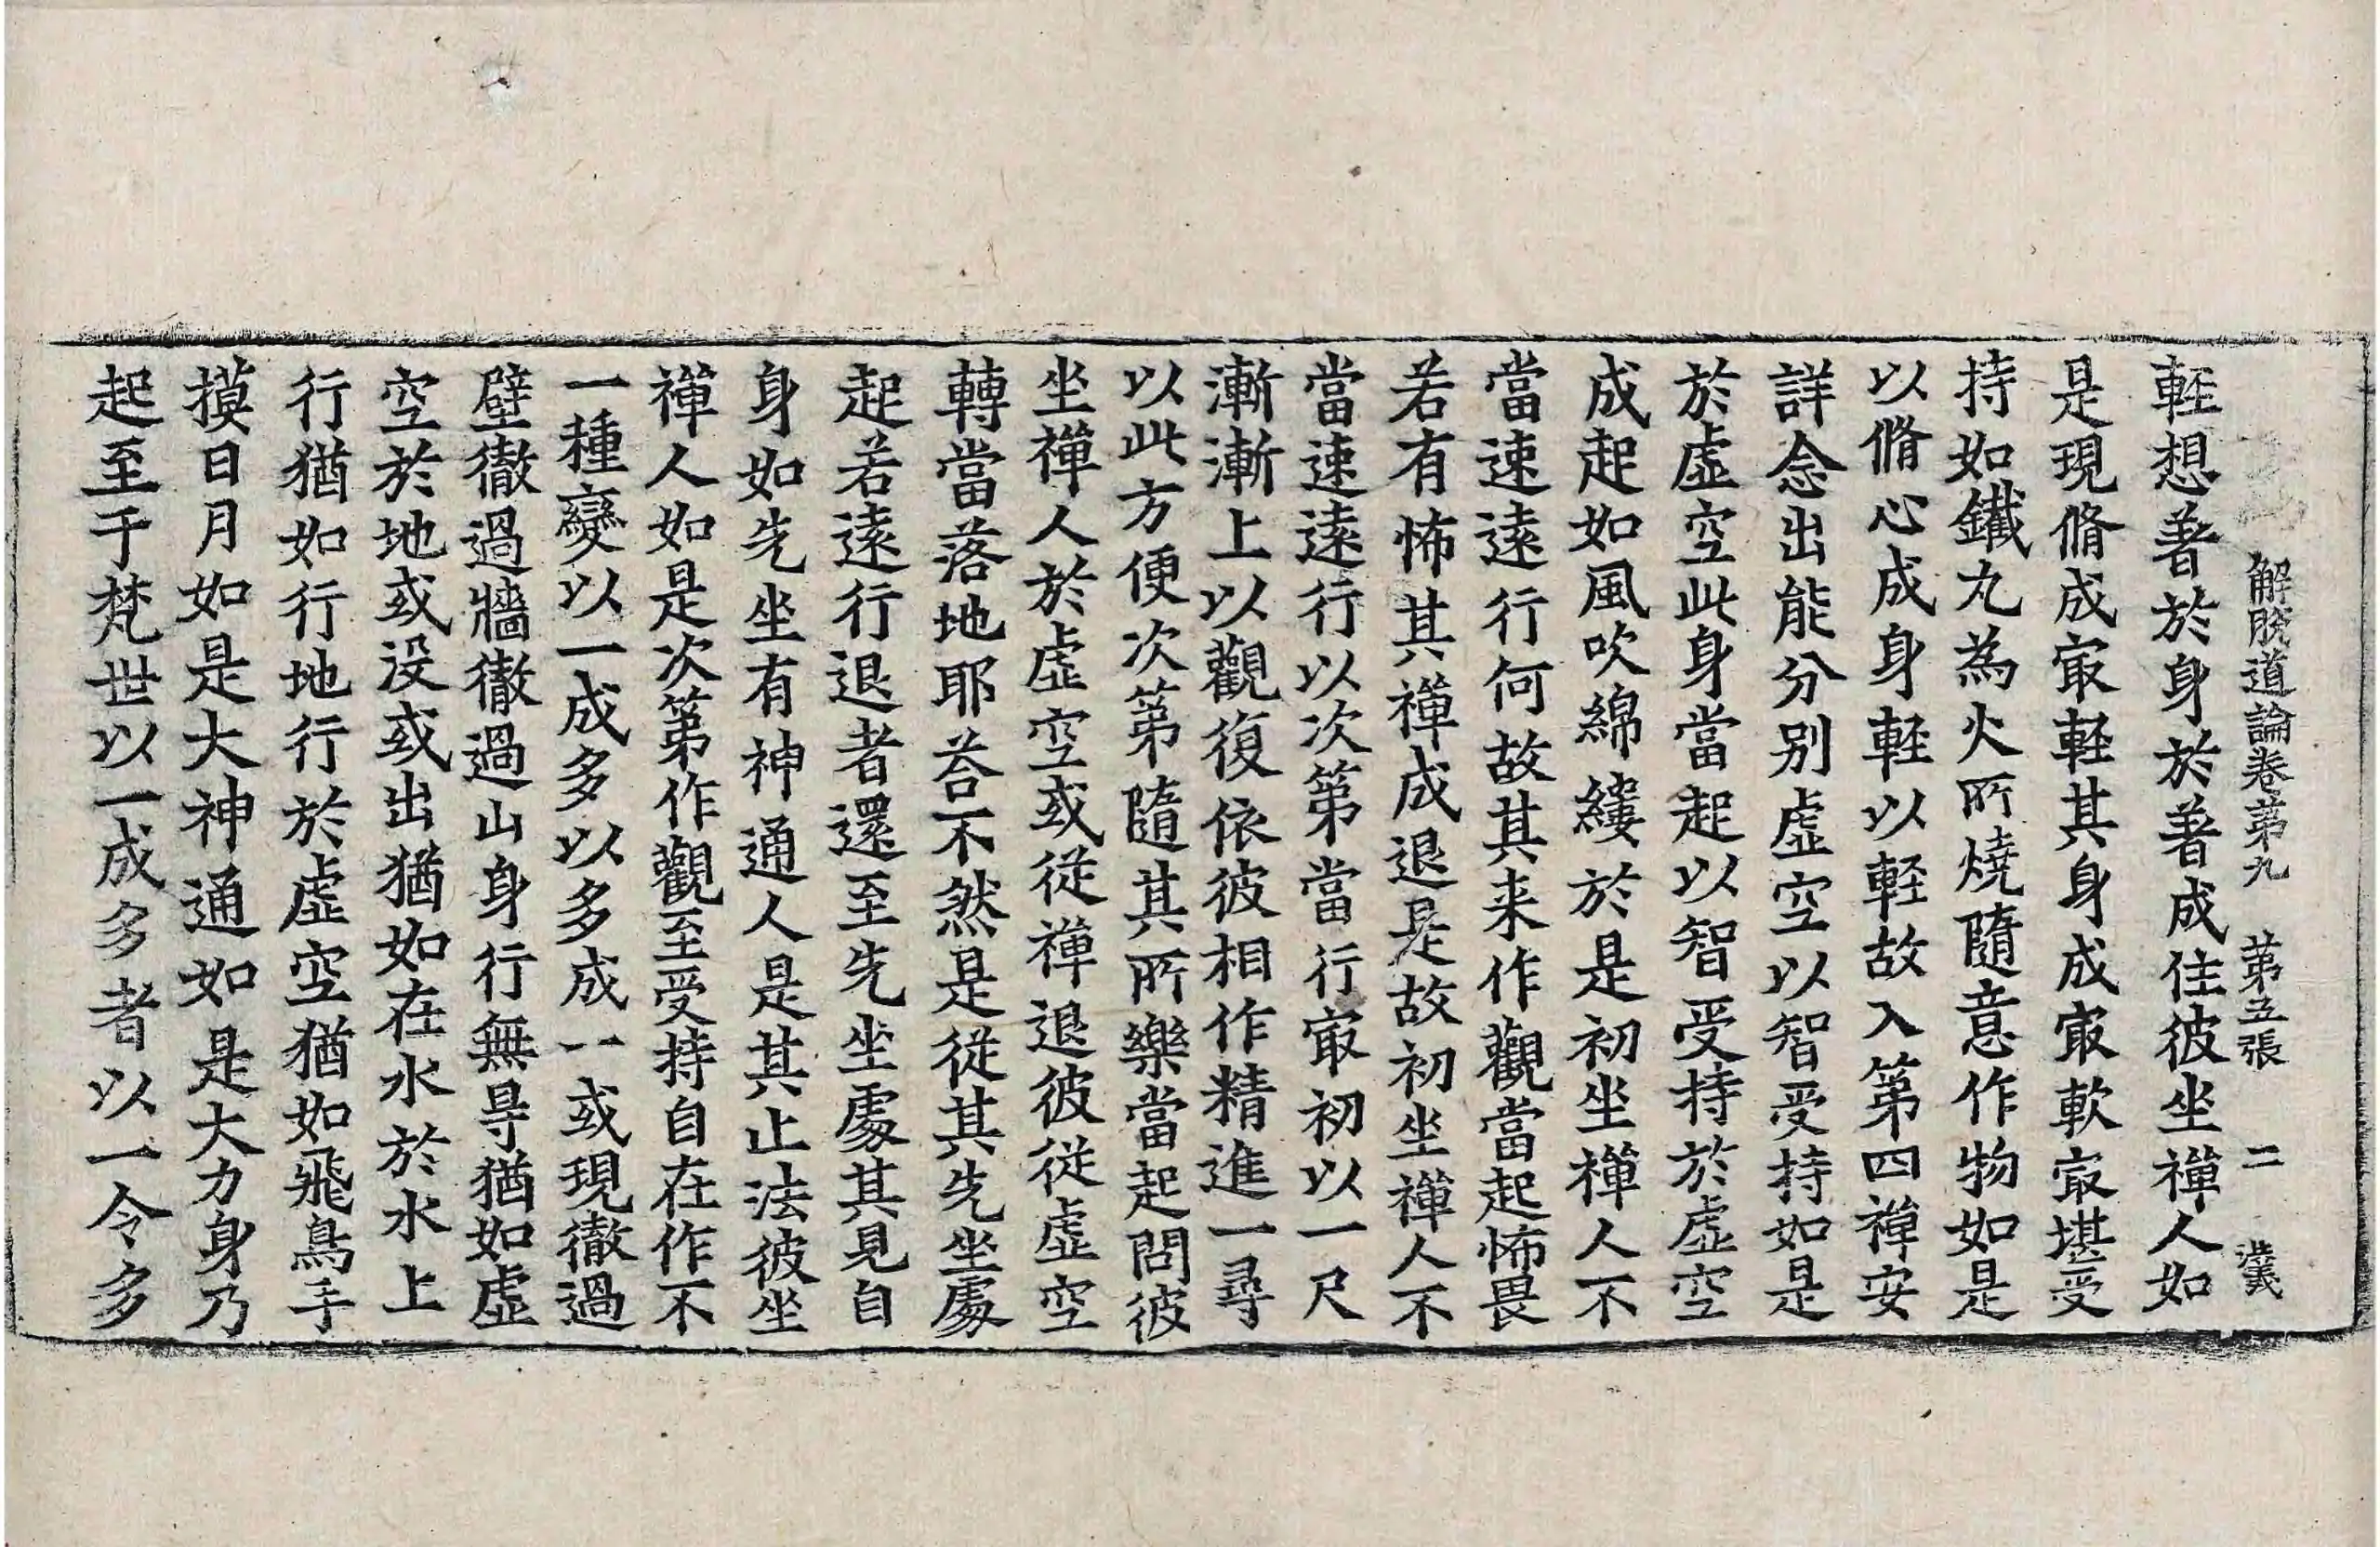 解脫道論卷第九　第五張　二　漢
輕想著於身於著成住彼坐禪人如
是現脩成㝡輕其身成㝡軟㝡堪受
持如鐵丸為火所燒隨意作物如是
以脩心成身輕以輕故入第四禪安
詳念出能分别虛空以智受持如是
於虛空此身當起以智受持於虛空
成起如風吹綿縷於是初坐禪人不
當速遠行何故其来作觀當起怖畏
若有怖其禪成退是故初坐禪人不
當速遠行以次第當行㝡初以一尺
漸漸上以觀復依彼相作精進一尋
以此方便次第隨其所樂當起問彼
坐禪人於虛空或從禪退彼從虛空
轉當落地耶荅不然是從其先坐處
起若遠行退者還至先坐處其見自
身如先坐有神通人是其止法彼坐
禪人如是次第作觀至受持自在作不
一種變以一成多以多成一或現徹過
壁徹過牆徹過山身行無㝵猶如虛
空於地或没或出猶如在水於水上
行猶如行地行於虛空猶如飛鳥手
摸日月如是大神通如是大力身乃
起至于梵世以一成多者以一令多